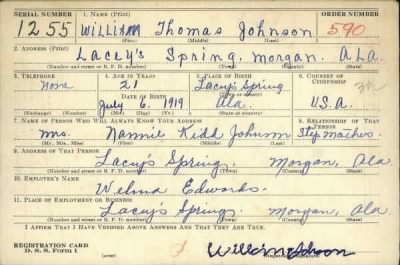 SERIAL NUMBER 1. NAME (Print) ORDER NUMBER
1255 William Thomas Johnson 590
(First) (Middle) (Last)
2. ADDRESS (Print)
Lacey's Spring, Morgan, ALA
(Number and street or R. F. D. number) (Town) (County) (State)
3. TELEPHONE 4. AGE IN YEARS 5. PLACE OF BIRTH 6. COUNTRY OF CITIZENSHIP
None 21 Lacey's Spring
DATE OF BIRTH (Town or county)
July 6, 1919 Ala. U.S.A.
(Exchange) (Number) (Mo.) (Day) (Yr.) (State or country)
7. NAME OF PERSON WHO WILL ALWAYS KNOW YOUR ADDRESS 8. RELATIONSHIP OF THAT PERSON
Mrs. Nannie Kidd Johnson Step Mother
(Mr., Mrs., Miss) (First) (Middle) (Last)
9. ADDRESS OF THAT PERSON
Lacey's Spring, Morgan, Ala
(Number and street or R. F. D. number) (Town) (County) (State)
10. EMPLOYER'S NAME
Wilma Edwards
11. PLACE OF EMPLOYMENT OR BUSINESS
Lacey's Spring, Morgan, Ala
(Number and street or R. F. D. number) (Town) (County) (State)
I AFFIRM THAT I HAVE VERIFIED ABOVE ANSWERS AND THAT THEY ARE TRUE.
REGISTRATION CARD
D. S. S. Form 1